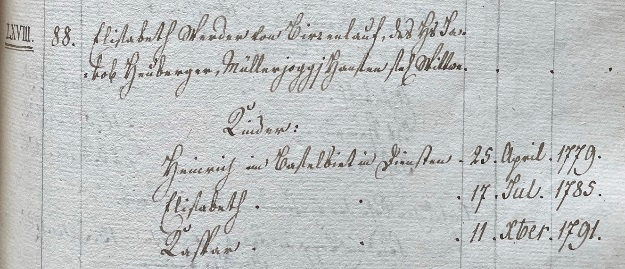 LXVIII. 88. Elisabeth Werder von Birrenlauf, des Hs Ja-
kob Heuberger, Müllerjoggj Hansen sel. Wittwe.
Kinder:
Heinrich im Baselbiet in Diensten. 25. April. 1779.
Elisabeth. 17. Jul. 1785.
Kaspar. 11. Xber. 1791.